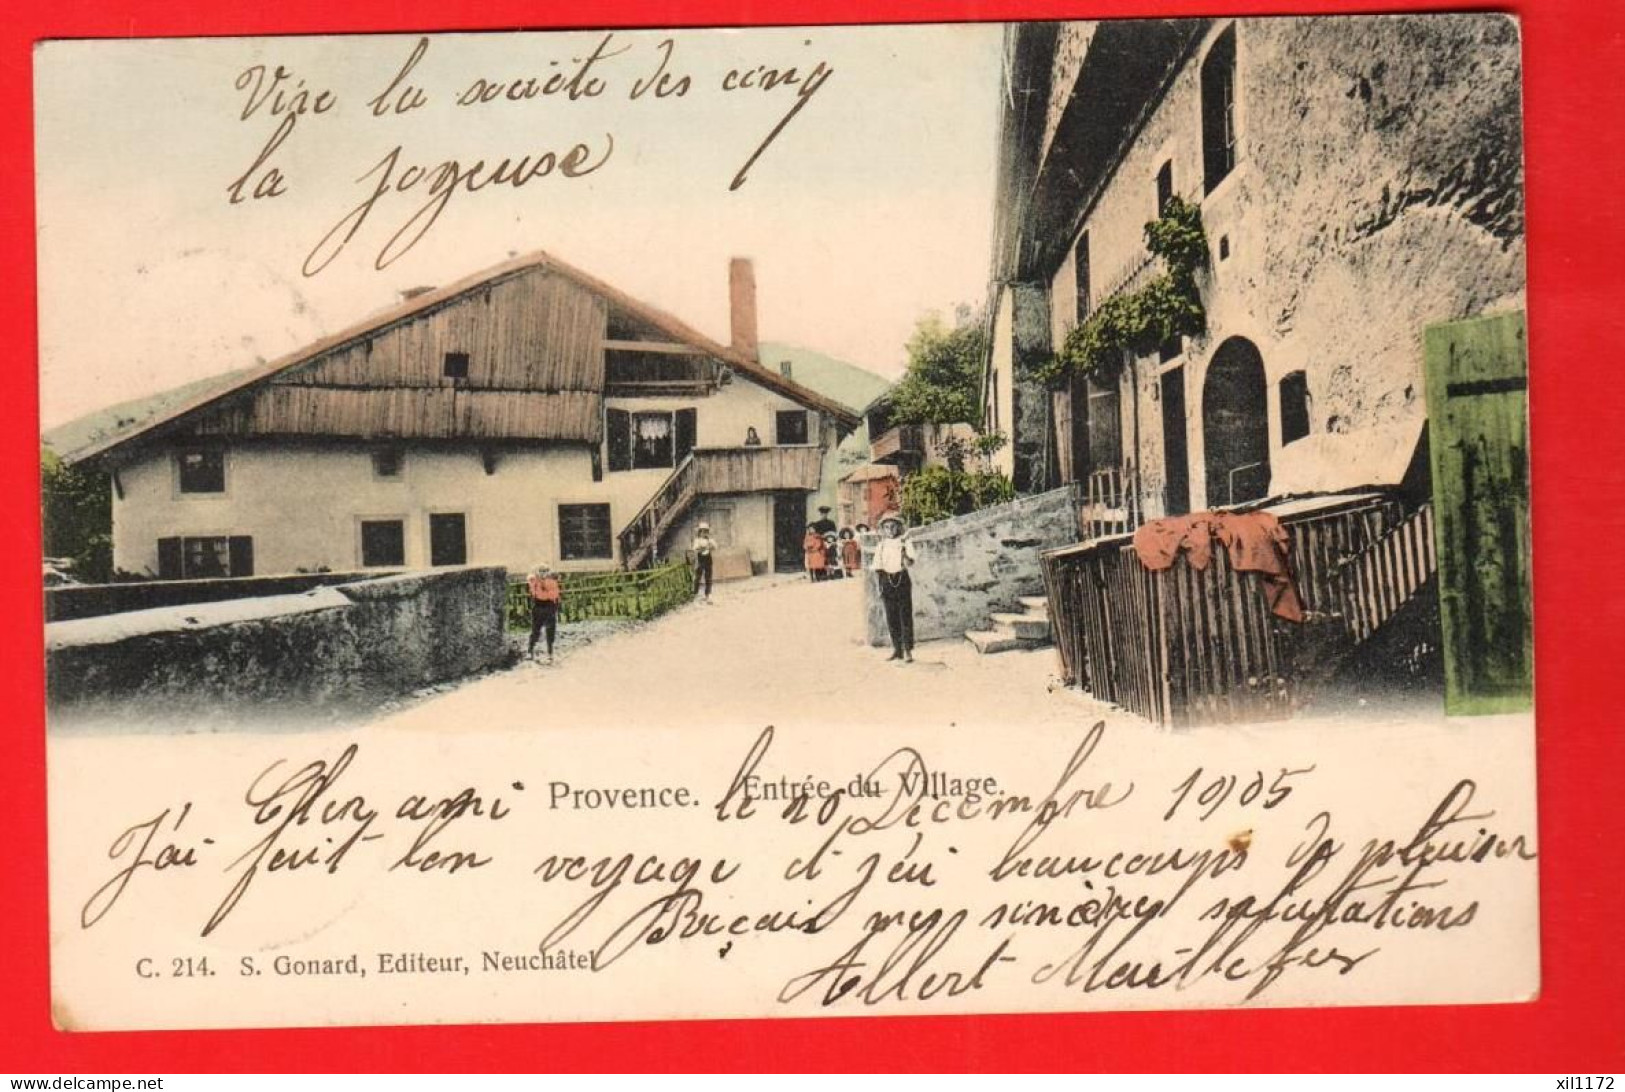 Vive la société des cinq
la joyeuse
Provence. Entrée du Village.
Cher ami le 20 Décembre 1905
J'ai fait bon voyage et j'ai beaucoups de plaisir
Reçais mes sincères salutations
Albert Maillefer
C. 214. S. Gonard, Editeur, Neuchâtel
Delcampe.net
xil1172